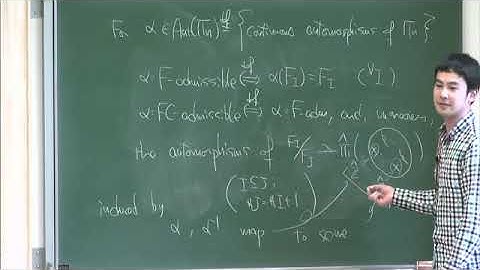 For α ∈ Aut(Πn) ≝ {continuous automorphisms of Πn}
α: F-admissible ⇔def α(F_I) = F_I (∀I)
α: FC-admissible ⇔def α: F-adm, and, moreover,
the automorphisms of F_I/F_J
(I ⊆ J; #J = #I+1)
induced by α, α⁻¹ map to some